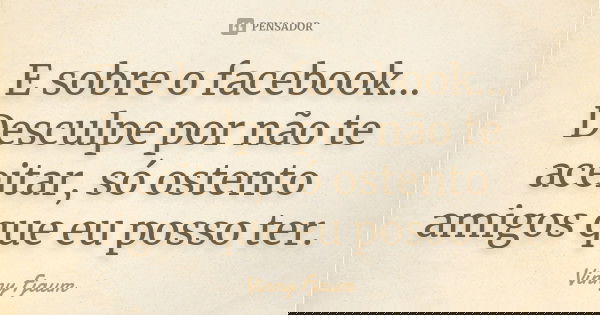 PENSADOR
E sobre o facebook...
Desculpe por não te
aceitar, só ostento
amigos que eu posso ter.